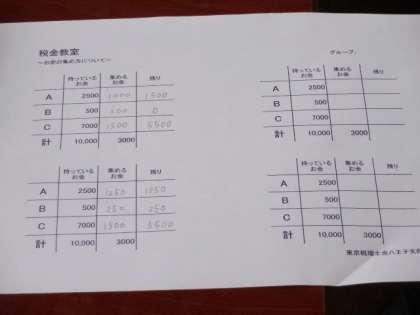 税金教室
～お金の集め方について～
持っているお金 集めるお金 残り
A 2500 1000 1500
B 500 500 0
C 7000 1500 5500
計 10,000 3000
持っているお金 集めるお金 残り
A 2500 1250 1250
B 500 250 250
C 7000 1500 5500
計 10,000 3000
グループ
持っているお金 集めるお金 残り
A 2500
B 500
C 7000
計 10,000 3000
持っているお金 集めるお金 残り
A 2500
B 500
C 7000
計 10,000 3000
東京税理士会八王子支部